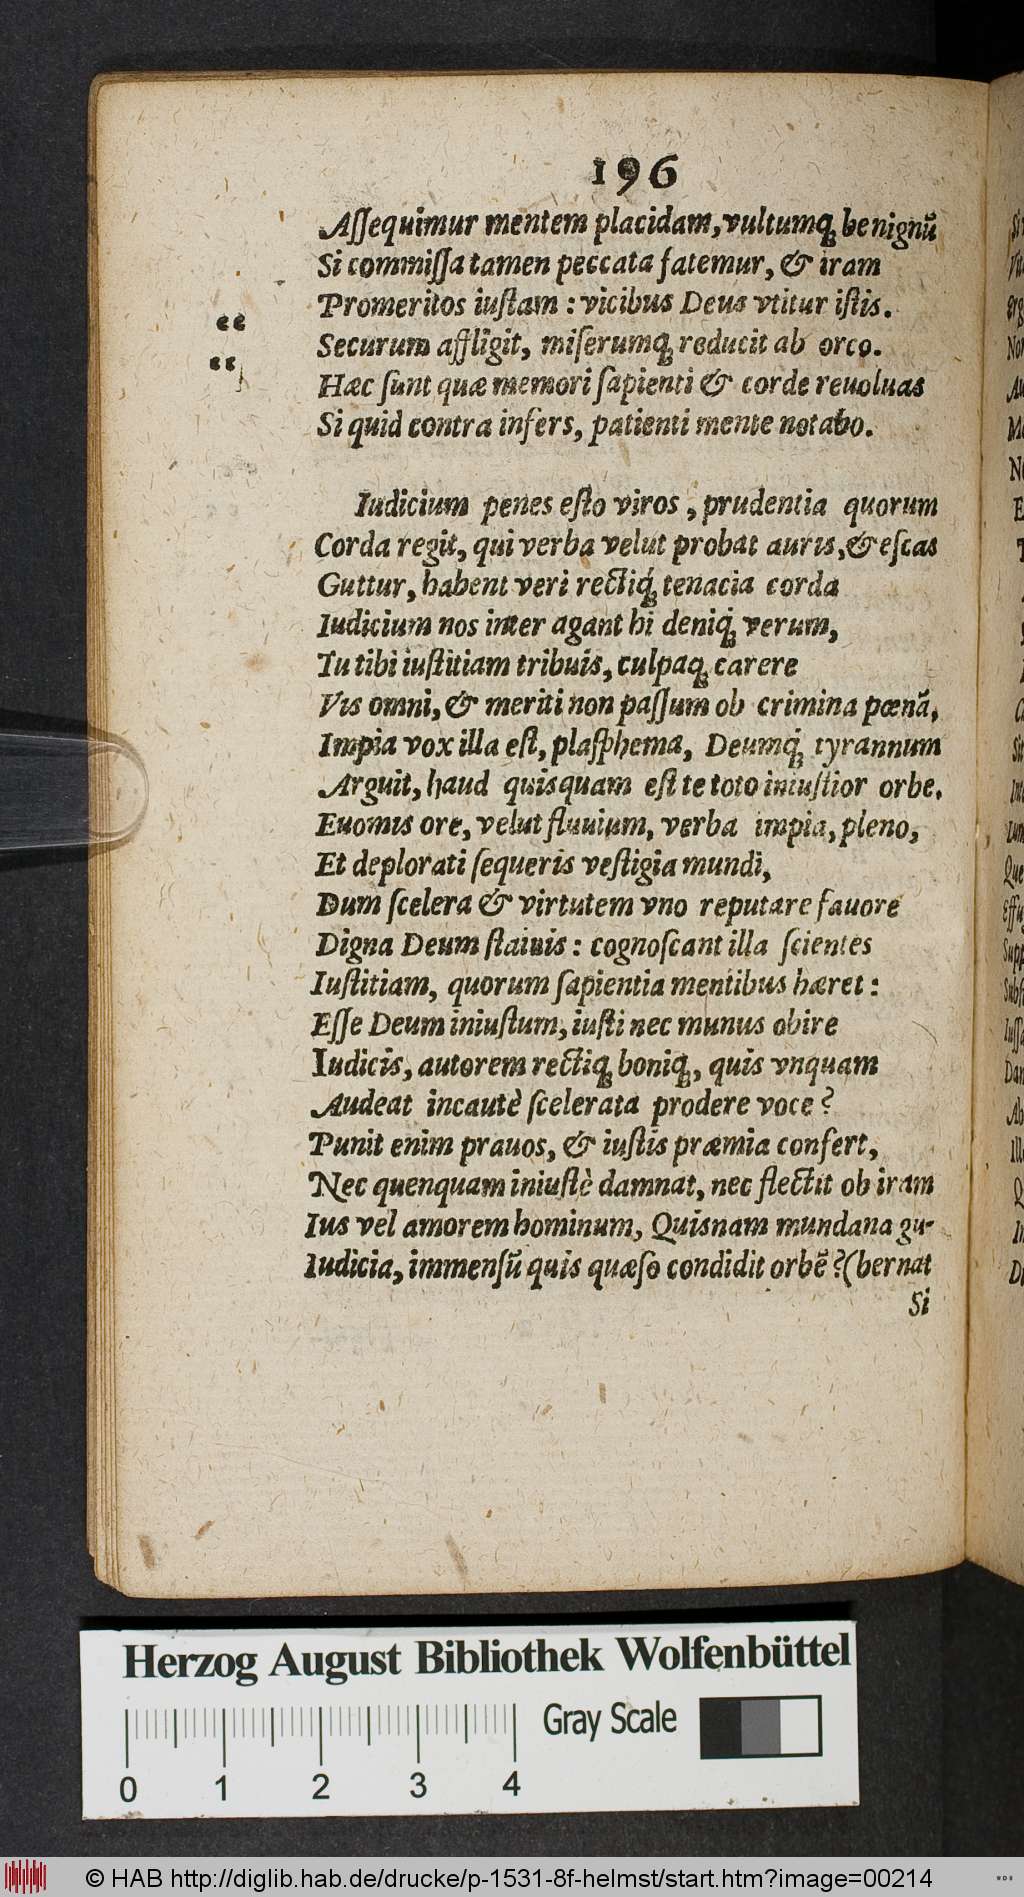 196
Aſſequimur mentem placidam, vultumq; benignũ
Si commiſſa tamen peccata fatemur, & iram
Promeritos iuſtam : vicibus Deus vtitur iſtis.
“ Securum affligit, miſerumq; reducit ab orco.
“ Hæc ſunt quæ memori ſapienti & corde reuoluas
Si quid contra infers, patienti mente notabo.
Iudicium penes eſto viros, prudentia quorum
Corda regit, qui verba velut probat auris, & eſcas
Guttur, habent veri rectiq́; tenacia corda
Iudicium nos inter agant hi deniq́; verum,
Tu tibi iuſtitiam tribuis, culpaq; carere
Vis omni, & meriti non paſſum ob crimina pœnã,
Impia vox illa eſt, plaſphema, Deumq́; tyrannum
Arguit, haud quisquam eſt te toto iniuſtior orbe,
Euomis ore, velut fluuium, verba impia, pleno,
Et deplorati ſequeris veſtigia mundi,
Dum ſcelera & virtutem vno reputare fauore
Digna Deum ſtatuis : cognoſcant illa ſcientes
Iuſtitiam, quorum ſapientia mentibus hæret :
Eſſe Deum iniuſtum, iuſti nec munus obire
Iudicis, autorem rectiq; boniq;, quis vnquam
Audeat incautè ſcelerata prodere voce ?
Punit enim prauos, & iuſtis præmia confert,
Nec quenquam iniuſtè damnat, nec flectit ob iram
Ius vel amorem hominum, Quisnam mundana gu-
Iudicia, immenſũ quis quæſo condidit orbẽ ? (bernat
Si
Herzog August Bibliothek Wolfenbüttel
0 1 2 3 4
Gray Scale
© HAB http://diglib.hab.de/drucke/p-1531-8f-helmst/start.htm?image=00214